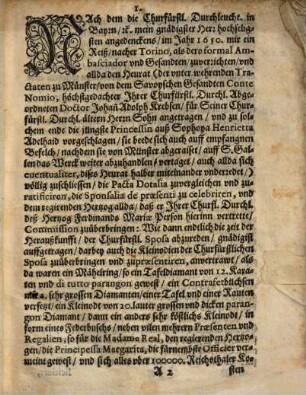 1.
NAch dem die Churfürstl. Durchleucht. in
Bayrn/ ꝛc. mein gnädigster Herr hochseelig-
sten angedenckens/ im Jahr 1650. mit ein
Reiß/ nacher Torino, als dero formal Am-
bassciador und Gesandten/ zuverrichten/ und
allda den Heurat (der unter wehrenden Tra-
ctaten zu Münster/ von dem Savoyschen Gesandten Conte
Nomio, höchstgedachter Ihrer Churfürstl. Durchl. Abge-
ordneten Doctor Johañ Adolph Krebsen/ für Seiner Chur-
fürstl. Durchl. ältern Herrn Sohn angetragen/ und zu sol-
chem ende die jüngste Princessin auß Sophoya Henrietta
Adelhaid vorgeschlagen/ sie beede sich auch auff empfangnen
Befelch/ nachdem sie von Münster abgeraist/ auff S. Gal-
len das Werck weiter abzuhandlen/ vertaget/ auch allda sich
eventualiter, dises Heurat halber miteinander underredet/)
völlig zuschliessen/ die Pacta Dotalia zuvergleichen und zu-
ratificirn, die Sponsalia de præsenti zu celebriren, und
dem regierenden Hertzog allda/ daß er Ihrer Churfl. Durchl.
deß Hertzog Ferdinands Mariæ Person hierinn vertrette/
Commission zuüberbringen: Wie dann endlich die zeit der
Heraußkunfft/ der Churfürstl. Sposa abzureden/ gnädigist
auffgetragen/ darbey auch die Kleinodien der Churfürstlichen
Sposa zuüberbringen und zupræsentiren, anvertrawt/ als
da waren ein Mähelring/ so ein Tafeldiamant von 12. Kara-
ten und di tutto parangon gewest/ ein Contrafetbüchsen
mit 4. sehr grossen Diamanten/ einer Tafel und einer Rauten
versetzt/ ein Kleinodt von 20. lauter grossen und dicken paran-
gon Diamant/ dann ein anders sehr köstlichs Kleinodt/ in
form eines Federbuschs/ neben vilen mehrern Præsenten und
Regalien, so für die Madame Real, den regierenden Hertzo-
gen/ die Principessa Margarita, die fürnembste Officier ver-
meint gewest/ und sich alles über 100000. Reichsthaler Ko-
A 2 sten